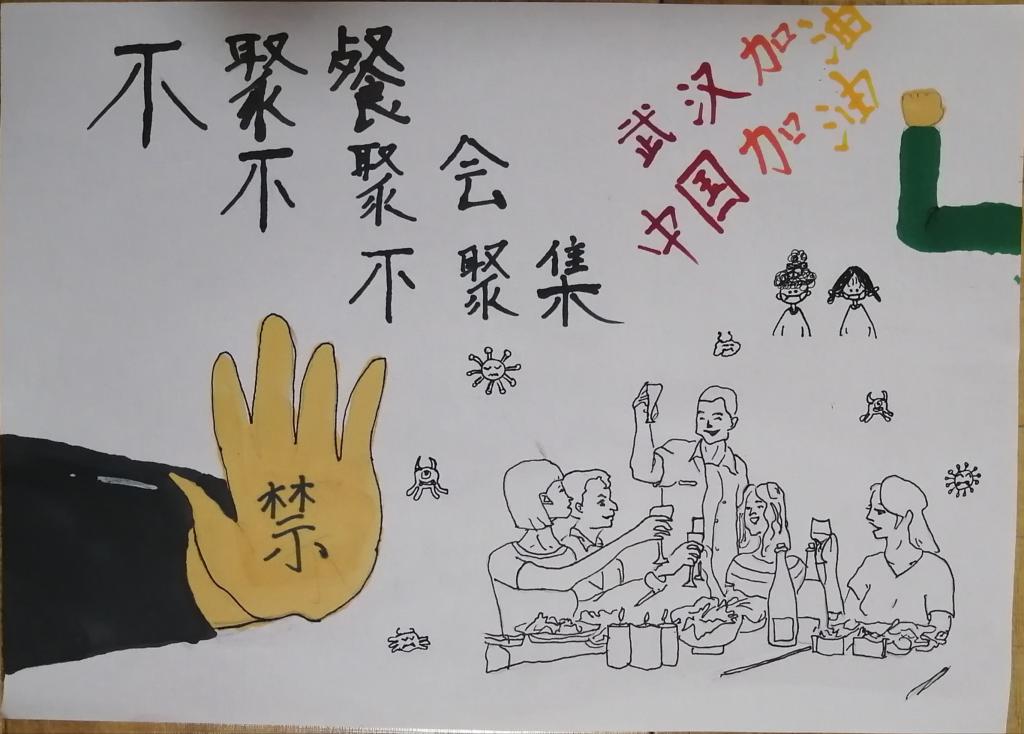 不聚餐
不聚会
不聚集
武汉加油
中国加油
禁